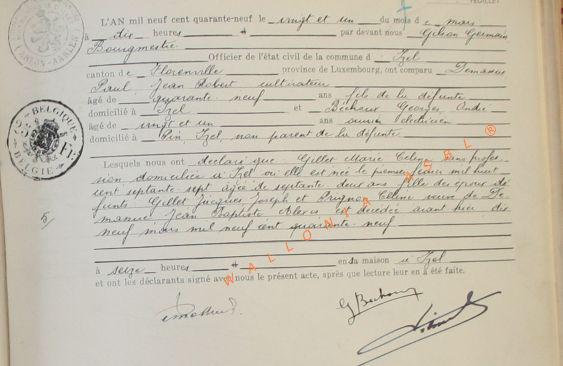 FEUILLET
L'AN mil neuf cent quarante-neuf le vingt et un du mois de mars
à dix heures par devant nous Gilson Germain
Bourgmestre
Officier de l'état civil de la commune d' Izel
canton de Florenville province de Luxembourg, ont comparu Demanet
Paul Jean Robert cultivateur
âgé de quarante-neuf ans fils de la défunte
domicilié à Izel et Bechoux Georges André
âgé de vingt et un ans ouvrier électricien
domicilié à Pin, Izel, non parent de la défunte
Lesquels nous ont déclaré que Gillet Marie Céline sans profes-
sion domiciliée à Izel où elle est née le premier mars mil huit
cent septante sept âgée de septante deux ans fille des époux dé-
funts Gillet Jacques Joseph et Prignon Céline veuve de De-
manet Jean Baptiste Alexis est décédée avant hier dix
neuf mars mil neuf cent quarante-neuf
à seize heures en sa maison à Izel
et ont les déclarants signé avec nous le présent acte, après que lecture leur en a été faite.
G Bechoux
BELGIQUE
BELGIE
WALLONIA ASBL ®